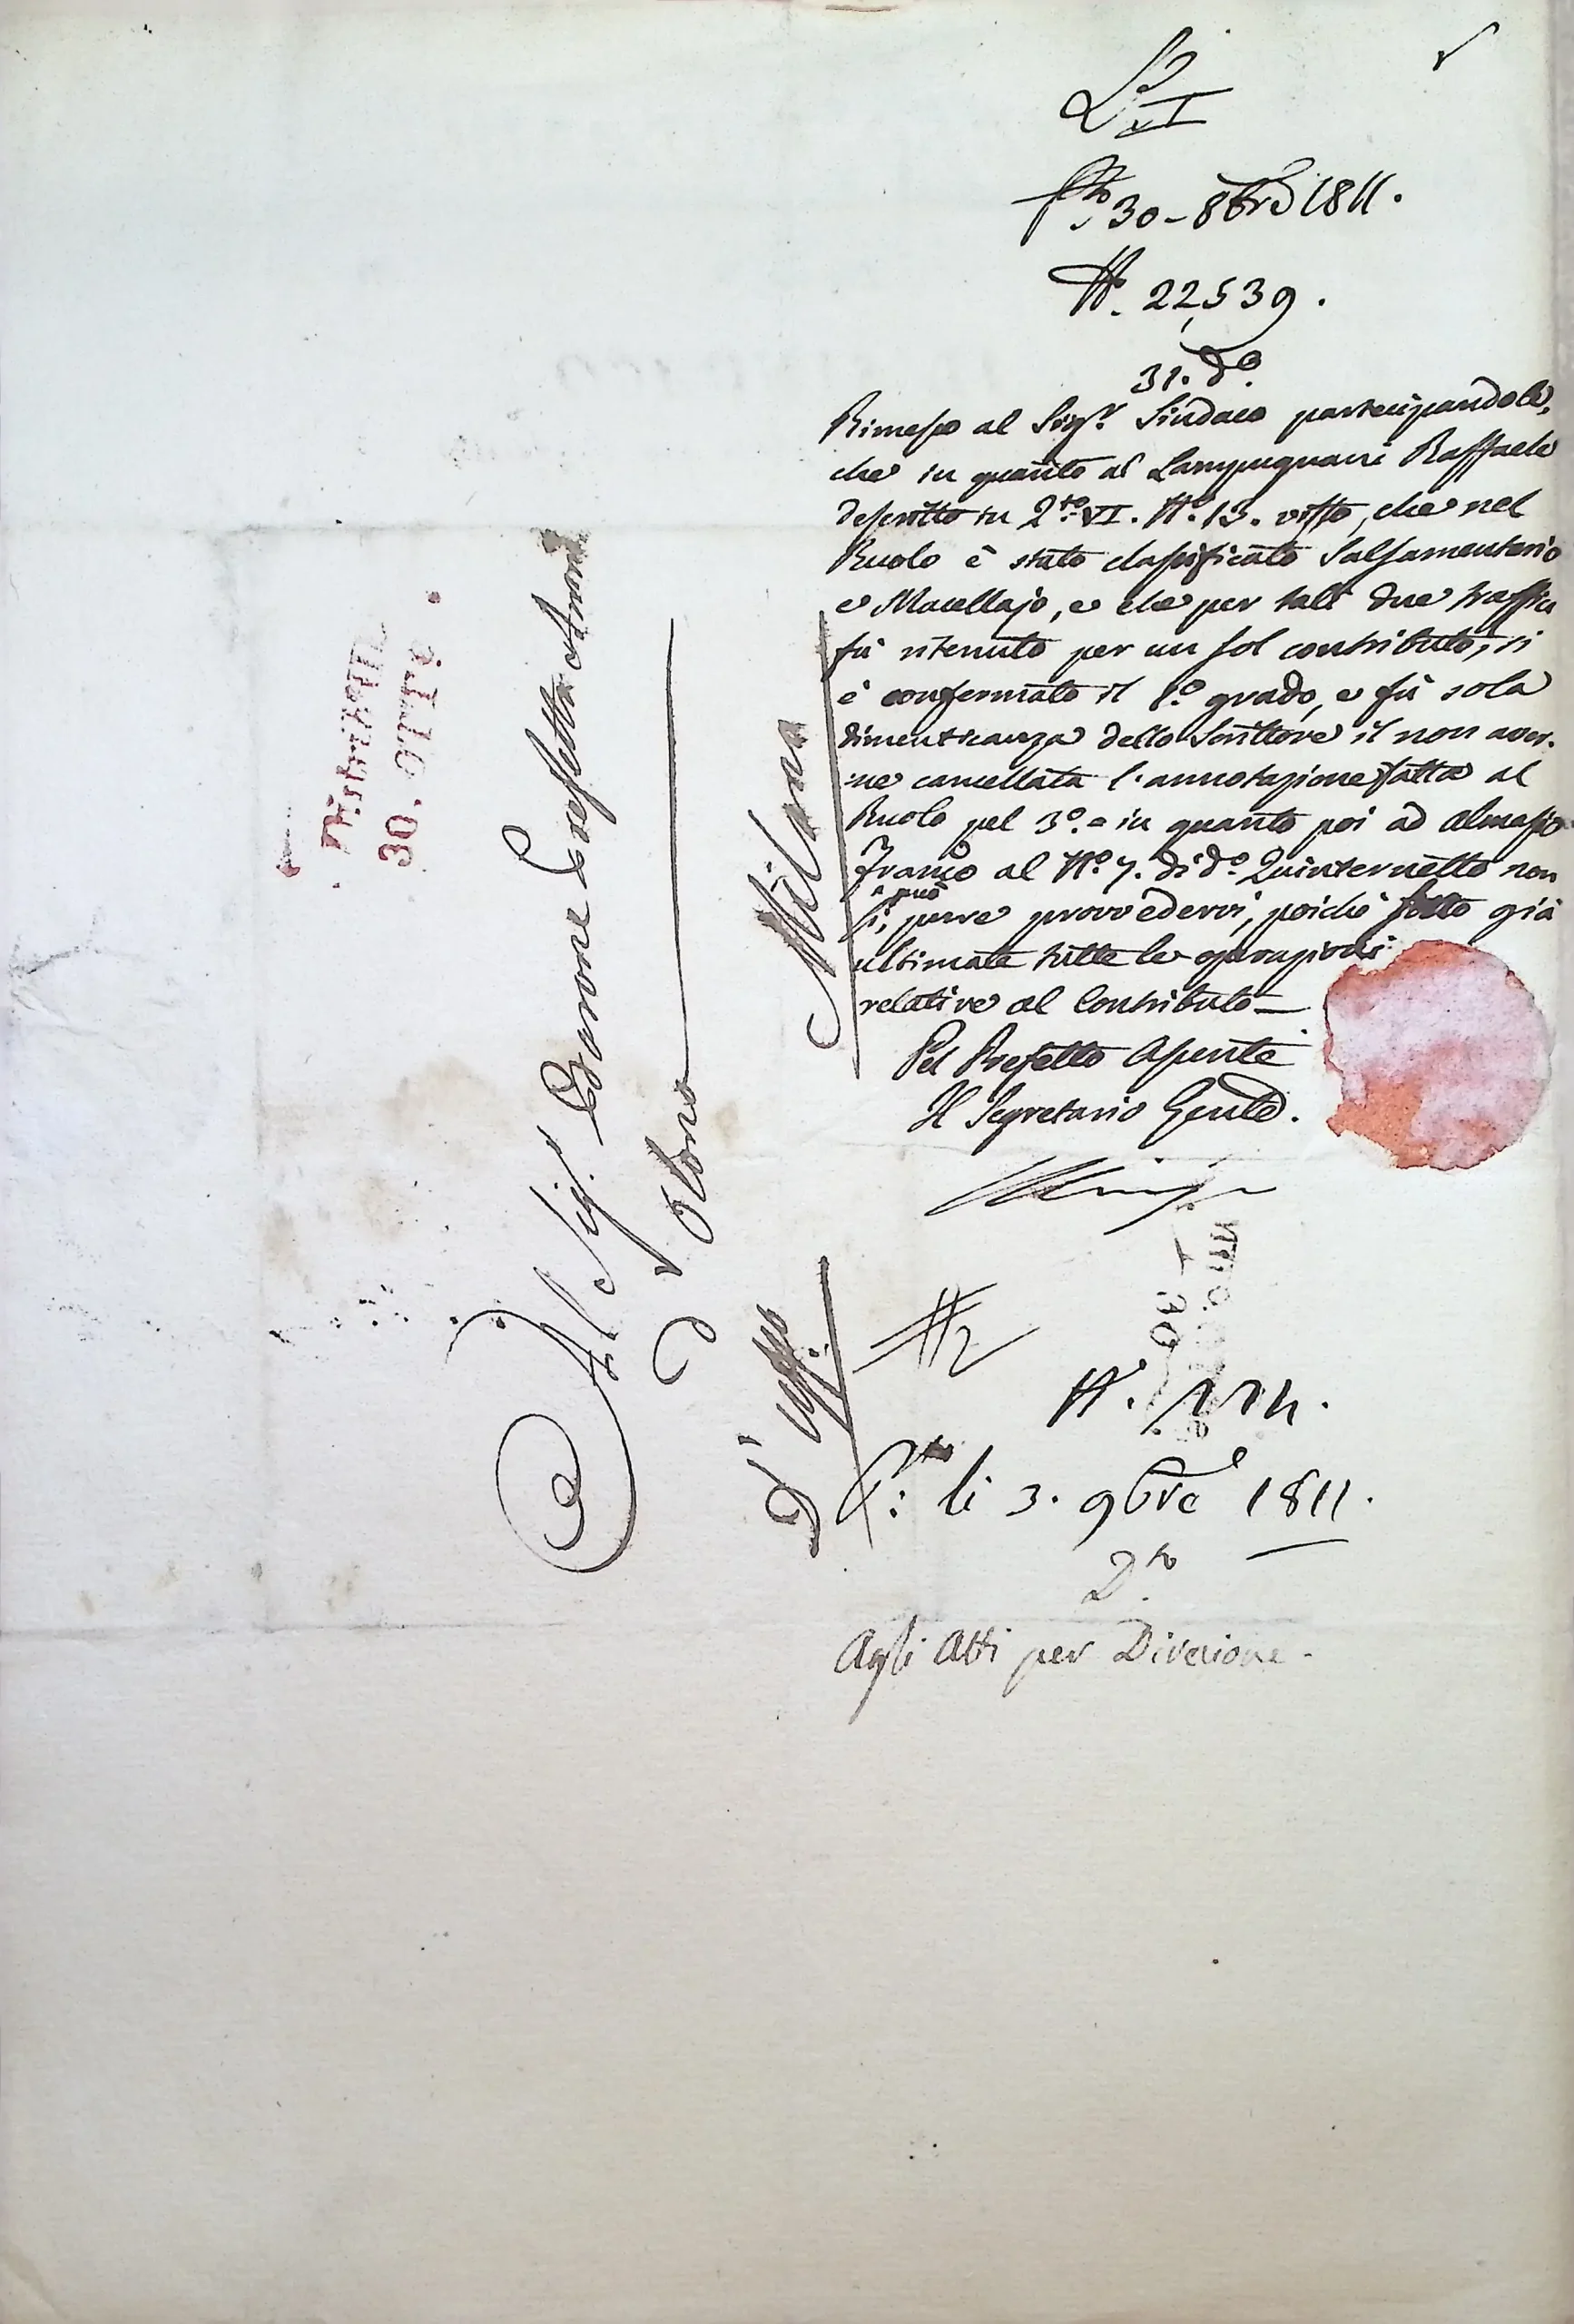 I
30 - 8bre 1811.
N.° 22,539.
31. do.
Rimesso al Sigr. Sindaco partecipandole,
che in quanto al Lampugnani Raffaele
descritto in 2.to VI. N.° 13. visto, che nel
Ruolo è stato classificato Salsamentario
e Macellajo, e che per tali due traffici
fù ritenuto per un sol contributo, si
è confermato il 1.° grado, e fù sola
dimenticanza dello Scrittore il non aver-
ne cancellata l'annotazione fatta al
Ruolo pel 3.° e in quanto poi ad Almasio
Franco al N.° 7. di do. Quinternetto non
si può provvedervi, poichè sono già
ultimate tutte le operazioni
relative al Contributo —
Pel Prefetto Assente
Il Segretario Genle.
N.
li 3. 9bre 1811.
Agli Atti per Divisione.
Al Sigr. Barone Prefetto
d'Olona
Milano
d'Uffo.
30. OTT.e